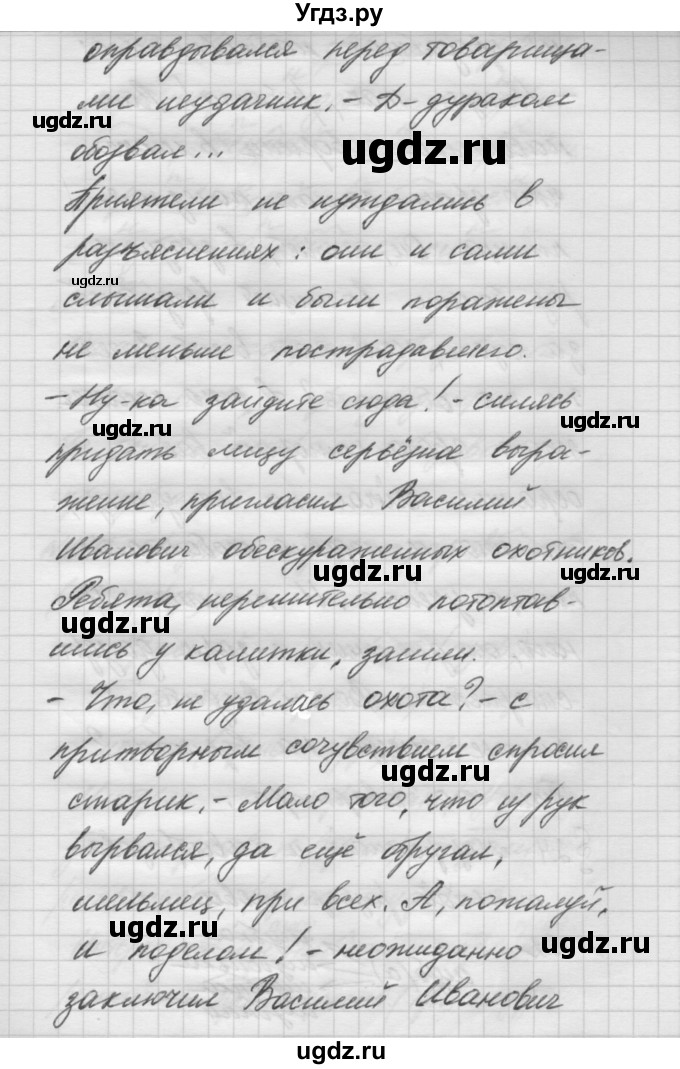 Угдз.ру
оправдывался перед товарища-
ми неудачник. – Д-дураком
ugdz.ru
ugdz.ru
обозвал...
ugdz.ru
Приятели не нуждались в
разъяснениях: они и сами
ugdz.ru
слышали и были поражены
не меньше пострадавшего.
– Ну-ка зайдите сюда! – силясь
ugdz.ru
ugdz.ru
придать лицу серьёзное выра-
жение, пригласил Василий
Иванович обескураженных охотников.
ugdz.ru
ugdz.ru
Ребята, нерешительно потоптав-
ugdz.ru
шись у калитки, зашли.
– Что, не удалась охота? – с
притворным сочувствием спросил
ugdz.ru
старик. – Мало того, что из рук
вырвался, да ещё обругал,
шельмец, при всех. А, пожалуй,
ugdz.ru
ugdz.ru
и поделом! – неожиданно
заключил Василий Иванович
ugdz.ru